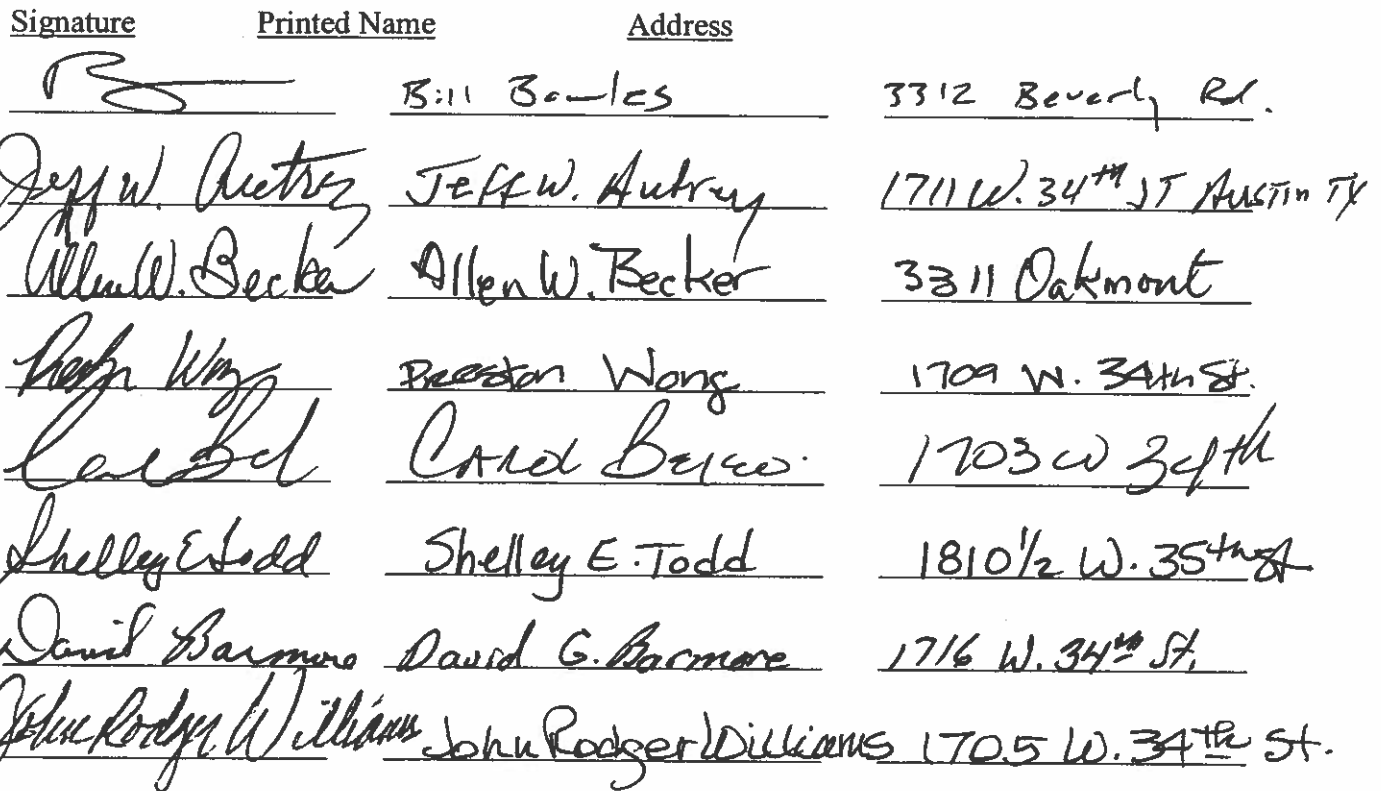 Signature Printed Name Address
Bill Bowles 3312 Beverly Rd.
Jeff W. Autrey Jeff W. Autrey 1711 W. 34th ST Austin TX
Allen W. Becker Allen W. Becker 3311 Oakmont
Preston Wong Preston Wong 1709 W. 34th St.
Carol 1703 W 34th
Shelley E Todd Shelley E. Todd 1810 1/2 W. 35th st
David Barmore David G. Barmore 1716 W. 34th St.
John Rodger Williams John Rodger Williams 1705 W. 34th St.